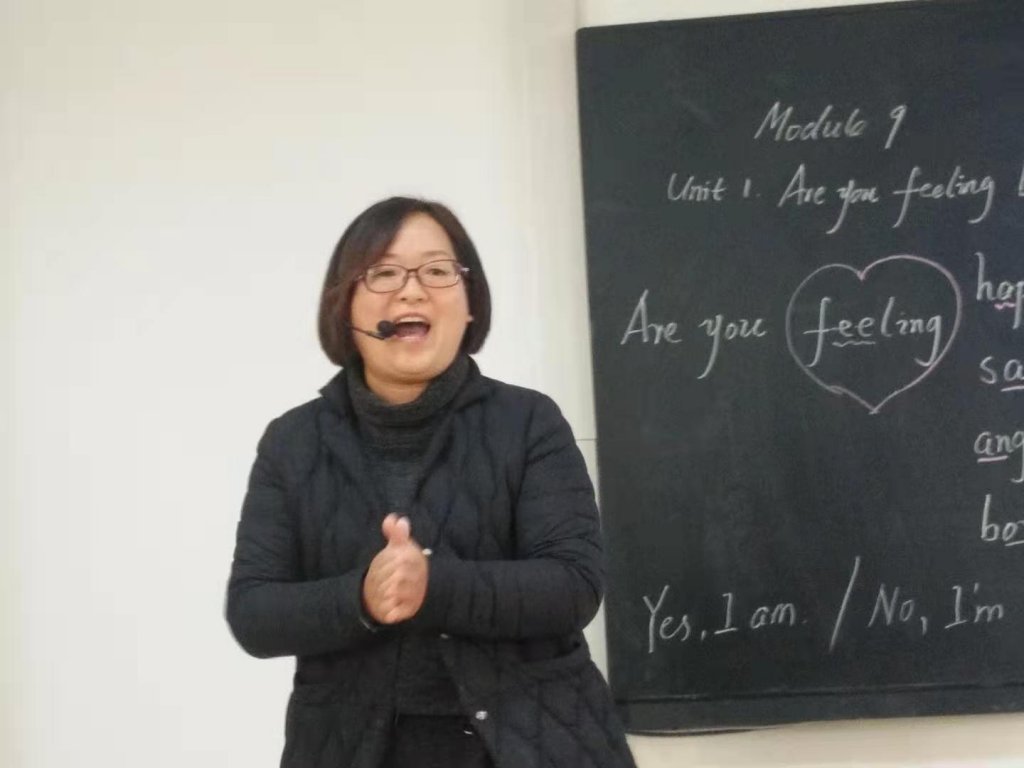 Module 9
Unit 1. Are you feeling
Are you feeling
Yes, I am. / No, I'm